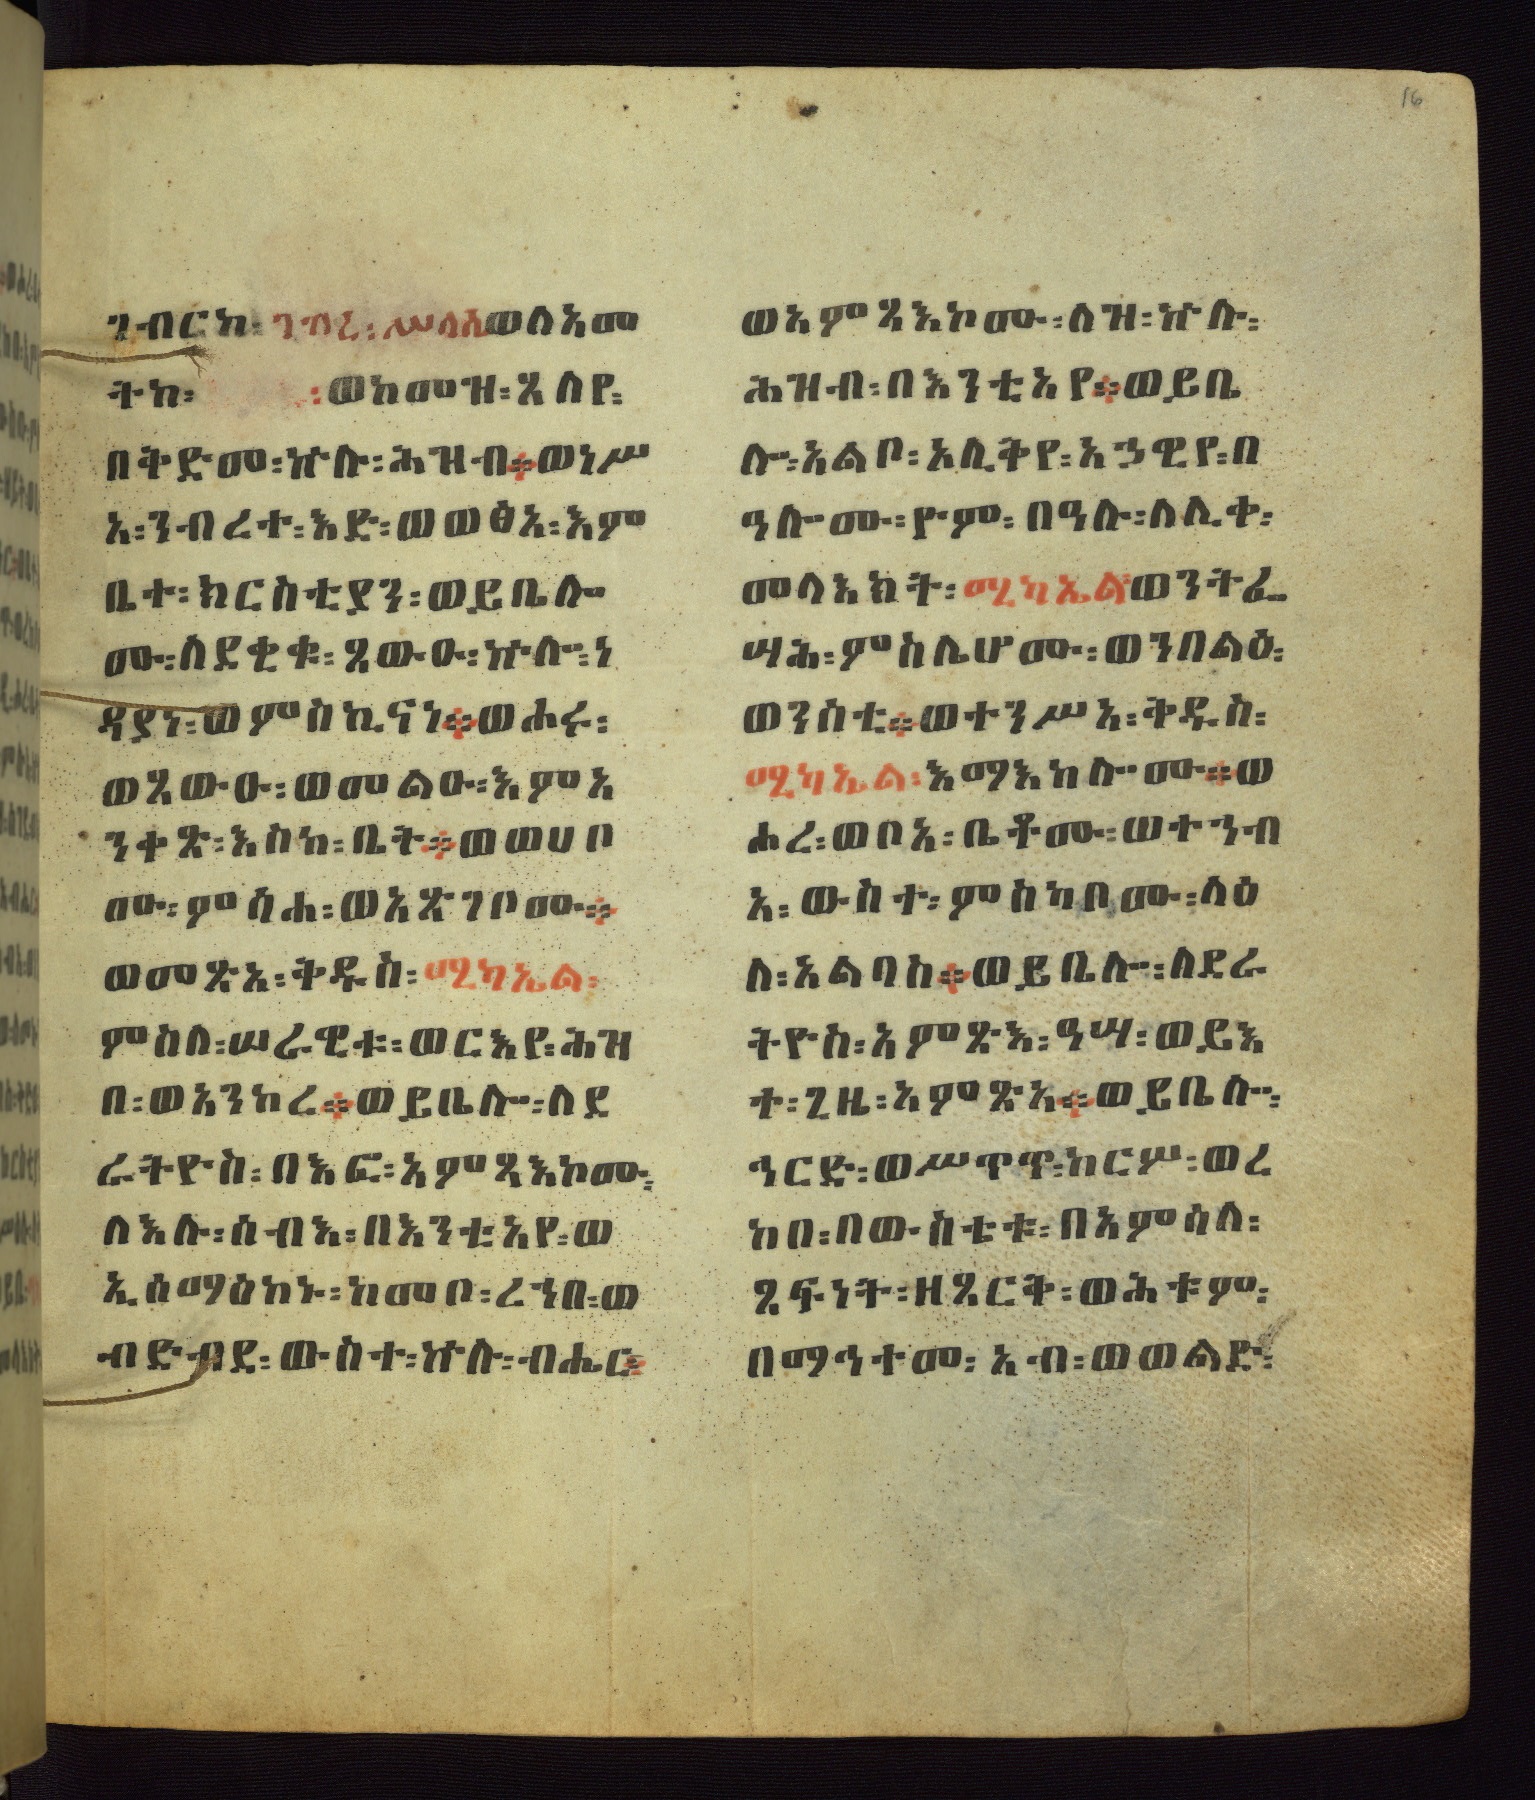 16
ገብርከ፡ ገብረ፡ ሥላሴ ወለአመ
ትከ፡ ፡ወከመዝ፡ጸለየ፡
በቅድመ፡ኵሉ፡ሕዝብ። ወነሥ
አ፡ንብረተ፡እድ፡ወወፅአ፡እም
ቤተ፡ክርስቲያን፡ወይቤሎ
ሙ፡ለደቂቁ፡ጸውዑ፡ኵሎ፡ነ
ዳያነ፡ወምስኪናነ። ወሐሩ፡
ወጸውዑ፡ወመልዑ፡እምአ
ንቀጽ፡እስከ፡ቤት። ወወሀቦ
ሙ፡ምሳሐ፡ወአጽገቦሙ።
ወመጽአ፡ቅዱስ፡ሚካኤል፡
ምስለ፡ሠራዊቱ፡ወርእየ፡ሕዝ
በ፡ወአንከረ። ወይቤሎ፡ለደ
ራትዮስ፡በእፎ፡አምጻእኮሙ፡
ለእሉ፡ሰብእ፡በእንቲአየ፡ወ
ኢሰማዕከኑ፡ከመቦ፡ረኀበ፡ወ
ብድብደ፡ውስተ፡ኵሉ፡ብሔር፡
ወአምጻእኮሙ፡ለዝ፡ኵሉ፡
ሕዝብ፡በእንቲአየ። ወይቤ
ሎ፡አልቦ፡አሊቅየ፡አኃዊየ፡በ
ዓሎሙ፡ዮም፡በዓሉ፡ለሊቀ፡
መላእክት፡ሚካኤል፡ወንትፌ
ሣሕ፡ምስሌሆሙ፡ወንበልዕ፡
ወንስቲ። ወተንሥአ፡ቅዱስ፡
ሚካኤል፡እማእከሎሙ። ወ
ሐረ፡ወቦአ፡ቤቶሙ፡ወተኀብ
አ፡ውስተ፡ምስካቦሙ፡ላዕ
ለ፡አልባስ። ወይቤሎ፡ለደራ
ትዮስ፡አምጽእ፡ዓሣ፡ወይእ
ተ፡ጊዜ፡አምጽአ። ወይቤሎ፡
ኀርድ፡ወሥጥጥ፡ከርሦ፡ወረ
ከበ፡በውስቴቱ፡በአምሳለ፡
ጺፍነት፡ዘጸርቅ፡ወሕቱም፡
በማኅተመ፡ አብ፡ወወልድ፡